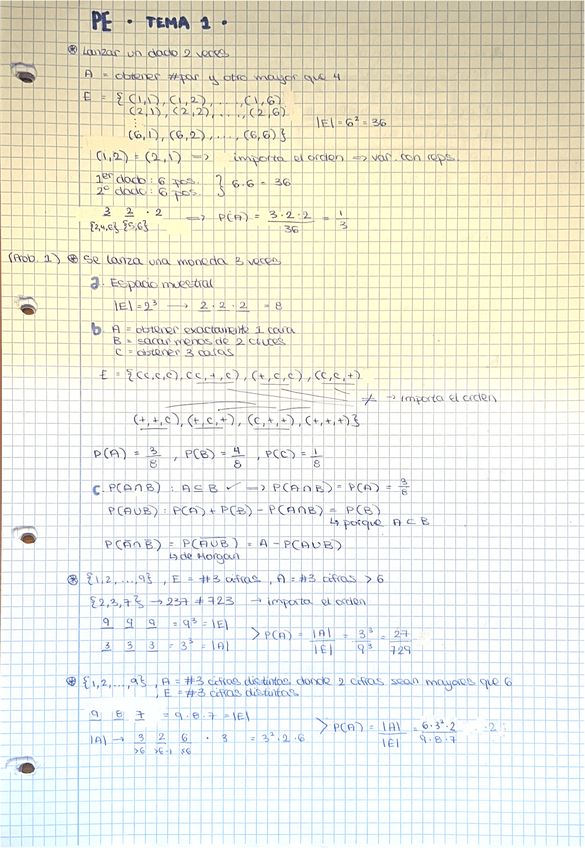 PE · TEMA 1 ·
⊛ Lanzar un dado 2 veces
A = obtener #par y otro mayor que 4
E = { (1,1), (1,2), ..., (1,6)
(2,1), (2,2), ..., (2,6)
|E| = 6² = 36
⋮
(6,1), (6,2), ..., (6,6) }
(1,2) = (2,1) => importa el orden => var. con reps.
1er dado: 6 pos. } 6·6 = 36
2º dado: 6 pos.
3 2 · 2 => P(A) = 3·2·2 / 36 = 1/3
{2,4,6} {5,6}
(Prob. 1) ⊛ Se lanza una moneda 3 veces
a. Espacio muestral
|E| = 2³ → 2 · 2 · 2 = 8
b. A = obtener exactamente 1 cara
B = sacar menos de 2 cruces
C = obtener 3 caras
E = {(c,c,c), (c,+,c), (+,c,c), (c,c,+)
≠ → importa el orden
(+,+,c), (+,c,+), (c,+,+), (+,+,+)}
P(A) = 3/8 , P(B) = 4/8 , P(C) = 1/8
c. P(A∩B) : A⊆B ✓ => P(A∩B) = P(A) = 3/8
P(A∪B) : P(A) + P(B) - P(A∩B) = P(B)
↳ porque A⊂B
P(A̅∩B̅) = P(A̅∪̅B̅) = A - P(A∪B)
↳ de Morgan
⊛ {1,2,...,9} , E = #3 cifras , A = #3 cifras > 6
{2,3,7} → 237 ≠ 723 → importa el orden
9 9 9 = 9³ = |E|
> P(A) = |A| / |E| = 3³ / 9³ = 27 / 729
3 3 3 = 3³ = |A|
⊛ {1,2,...,9} , A = #3 cifras distintas donde 2 cifras sean mayores que 6
, E = #3 cifras distintas
9 8 7 = 9·8·7 = |E|
> P(A) = |A| / |E| = 6·3²·2 / 9·8·7
|A| → 3 2 6 · 3 = 3²·2·6
>6 >6-1 ≤6